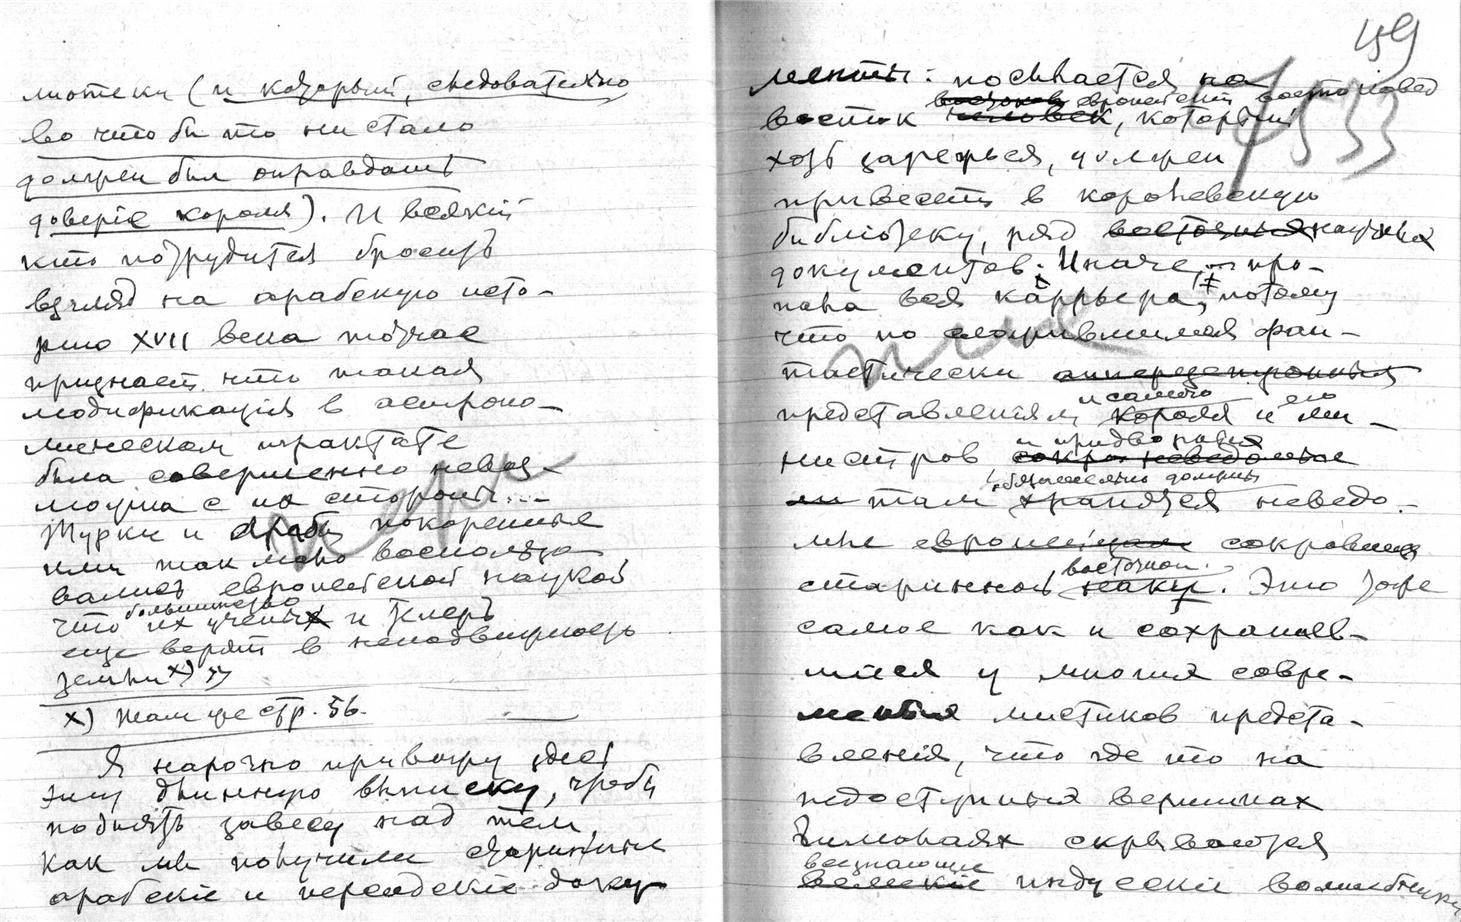 лиотеки (и который, следовательно
во что бы то ни стало
должен был оправдать
доверіе короля). И всякій
кто потрудится бросить
взгляд на арабскую исто-
рію XVII века тотчас
признает что такая
модификація в астроно-
мическом трактате
была совершенно невоз-
можна с их стороны...
Турки и арабы покоренные
ими так мало воспользо
вались европейской наукой
большинство
что их ученых и теперь
еще верят в неподвижность
земли х) "
х) Там же стр. 56.
Я нарочно привожу здесь
эту длинную выписку, чтобы
поднять завесу над тем,
как мы получили старинные
арабскіе и персидскіе доку
159
4533
менты: посылается на
европейскій востоковед
восток человек, который
хоть зарежься, должен
привести в королевскую
библіотеку, ряд восточных научных
документов. Иначе, про-
пала вся каррьера, потому
что по сложившимся фан-
тастически
и самого его
представленіям короля и ми-
и придворных
нистров
обязательно должны
там хранятся неведо-
мые сокровища
восточной
старинной науки. Это тоже
самое как и сохранив-
шіяся у многих совре-
менных мистиков предста-
вленія, что где то на
недоступных вершинах
Гималаях скрываются
всезнающіе
великіе индусскіе волшебники